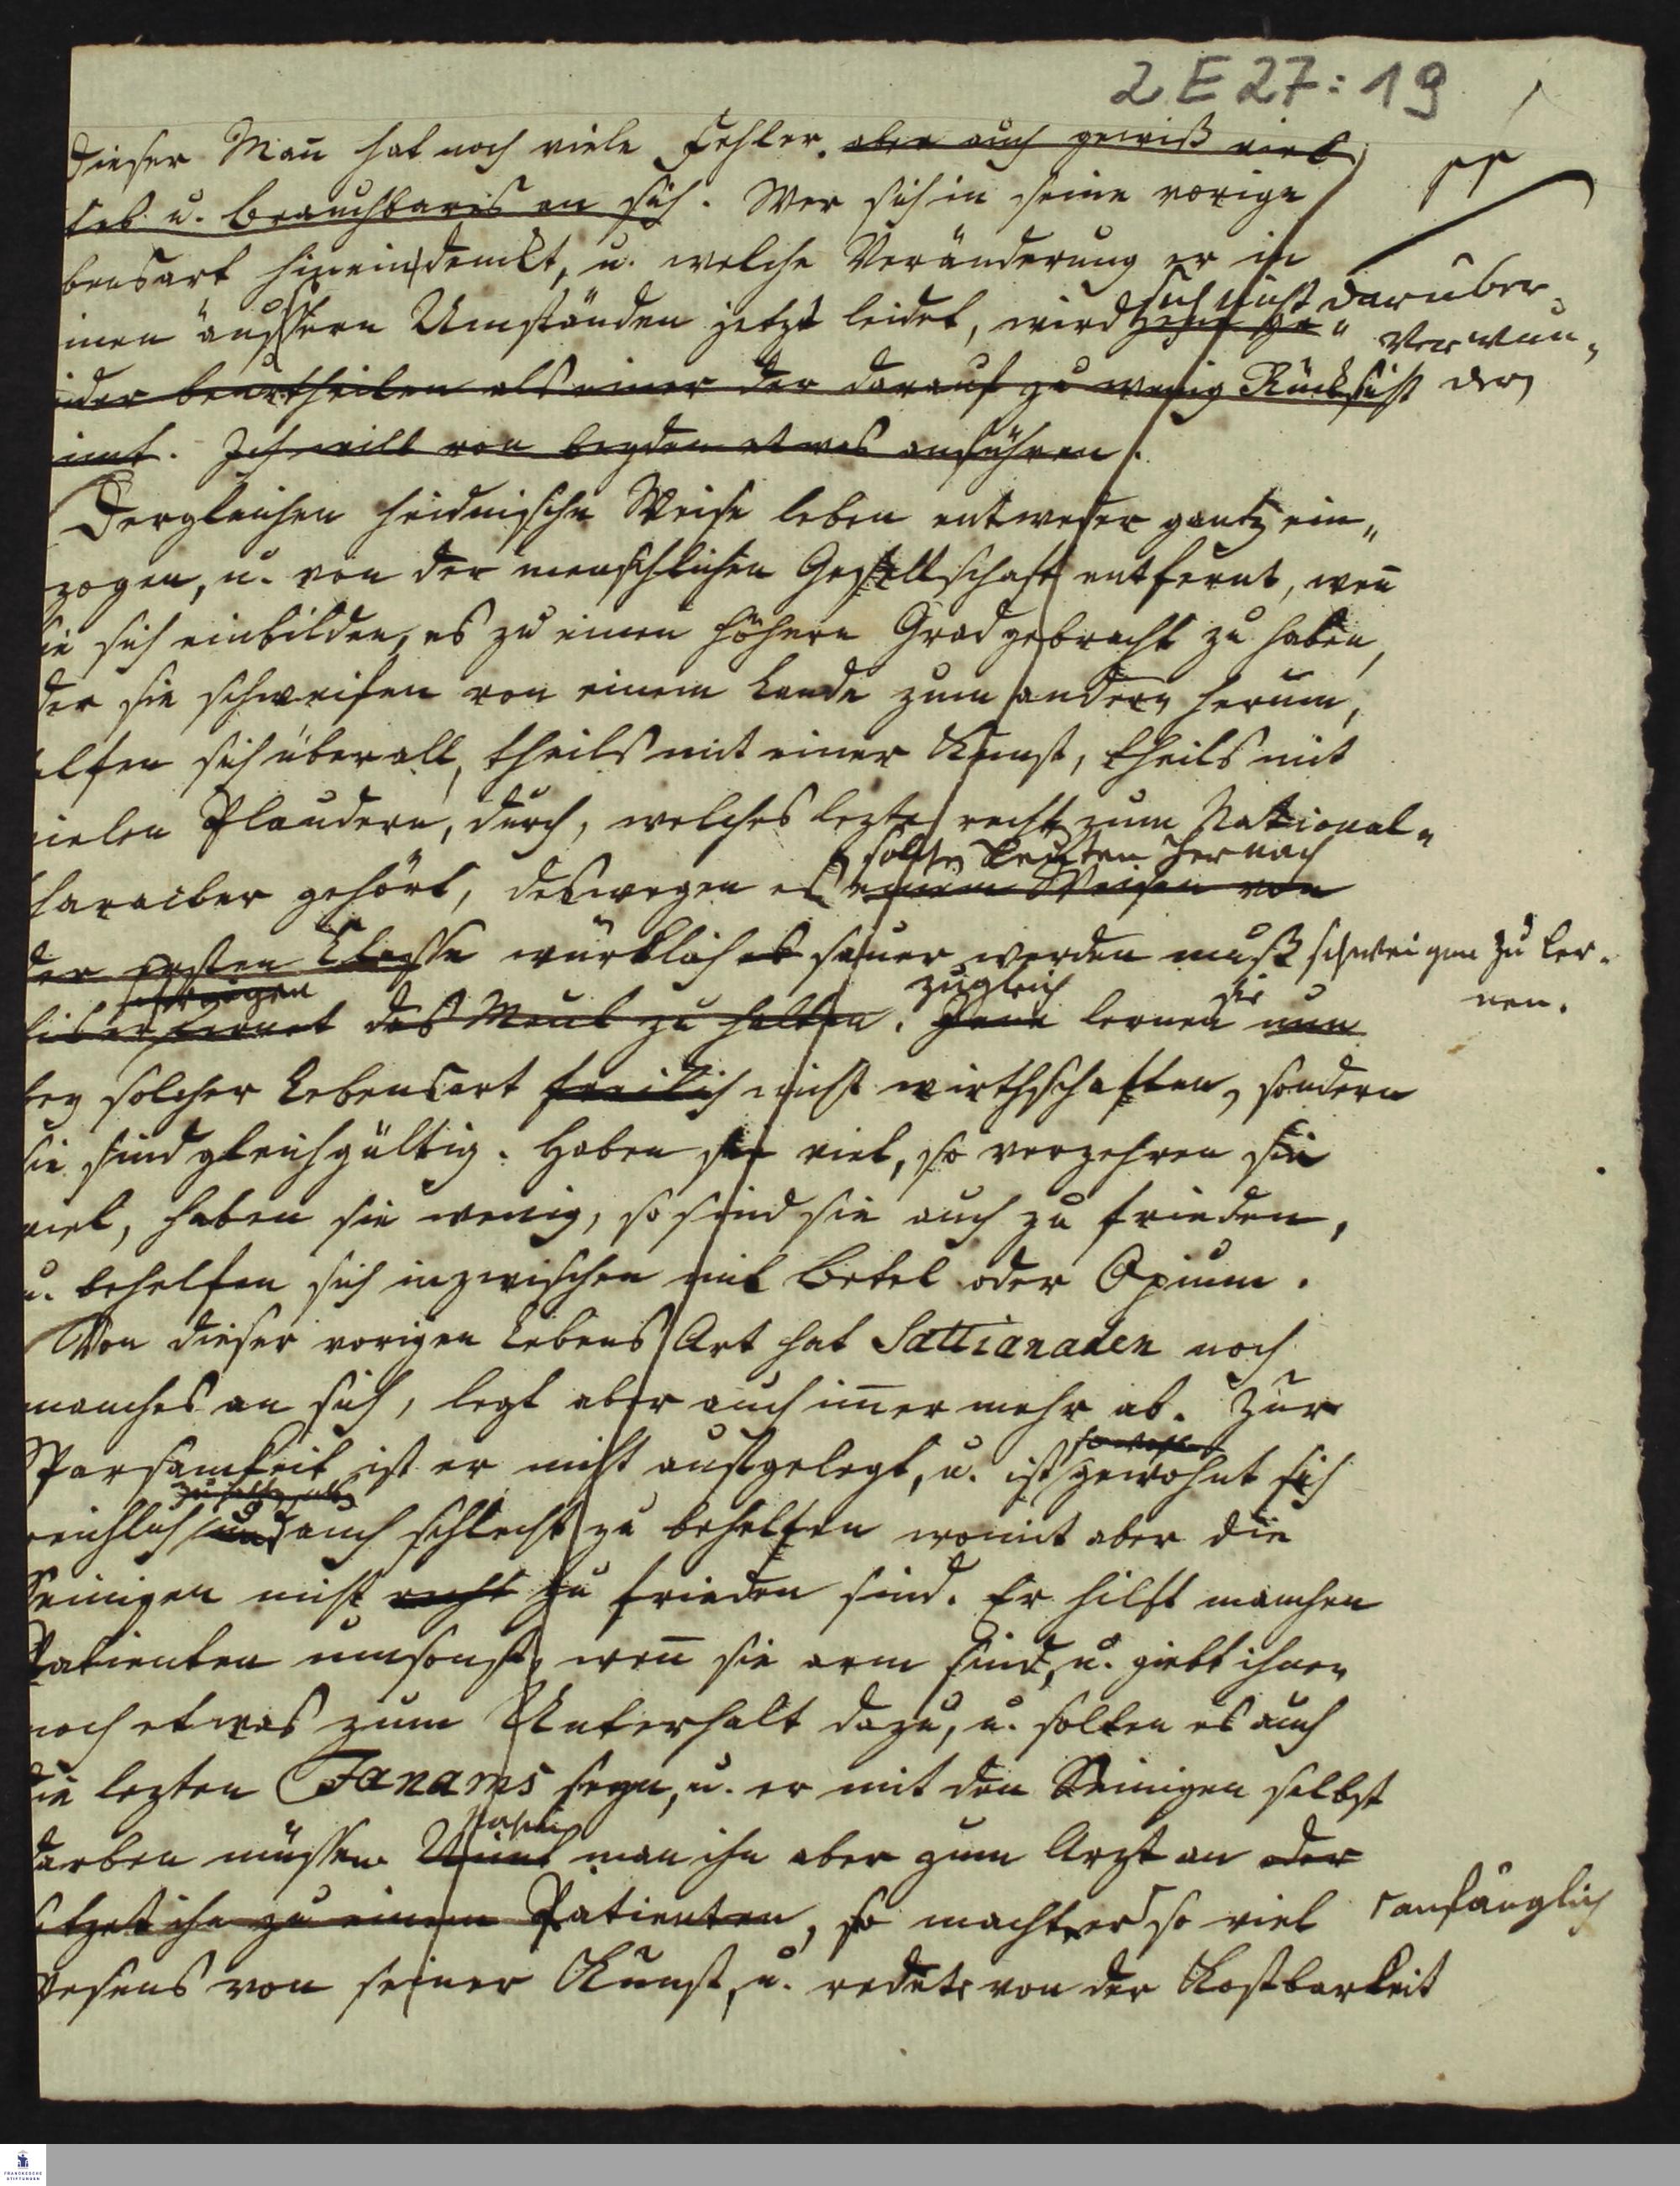 2 E 27:19
Dieser Mañ hat noch viele Fehler. aber auch gewiß viel
lieb u. brauchbares an sich. Wer sich in seine vorige
bensart hineindenckt, u. welche Veränderung er in
inen äussern Umständen jetzt leidet, wird sich nicht darüber
verwun-
dern
ider beurtheilen als einer der darauf zu wenig Rücksicht
imt. Ich will von beyden etwas anführen.
Dergleichen heidnische Weise leben entweder gantz ein„
zogen, u. von der menschlichen Gesellschaft entfernt, weñ
sie sich einbilden, es zu einen höhern Grad gebracht zu haben,
der sie schweifen von einem Lande zum andern herum,
elfen sich überall, theils mit einer Kunst, theils mit
vielen Plaudern, durch, welches lezte recht zum National„
solchen Leuten hernach
haracter gehört, deswegen es einem Weisen von
der ersten Classe würklich es sauer werden muß schweigen zu ler-
nen.
schweigen zugleich sie
bis er lernet das Maul zu halten. Jene lernen nun
bey solcher Lebensart freilich nicht wirthschaften, sondern
sie sind gleichgültig. Haben sie viel, so verzehren sie
viel, haben sie wenig, so sind sie auch zu frieden,
u. behelfen sich inzwischen mit Betel oder Opium.
Von dieser vorigen Lebens Art hat Sattianaden noch
manches an sich, legt aber auch im̃er mehr ab. Zur
Sparsamkeit ist er nicht aufgelegt, u. ist sowohl gewohnt sich
reichlich und auch schlecht zu behelfen womit aber die
Seinigen nicht recht zu frieden sind. Er hilft manchen
Patienten umsonst, weñ sie arm sind, u. giebt ihnen
noch etwas zum Unterhalt dazu, u. solten es auch
die lezten Fanams seyn, u. er mit den Seinigen selbst
darben müssen. Nimt man ihn aber zum Arzt an oder
ihn zu einem Patienten, so macht er so viel anfänglich
Wesens von seiner Kunst, u. redete von der Kostbarkeit
FRANCKESCHE
STIFTUNGEN